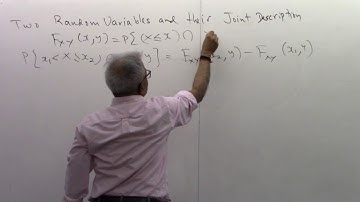 Two Random Variables and their Joint Description
F_{XY}(x,y) = P{(X≤x)∩
P{x₁<X≤x₂, y] = F_{XY} , y) − F_{XY}(x₁, y)